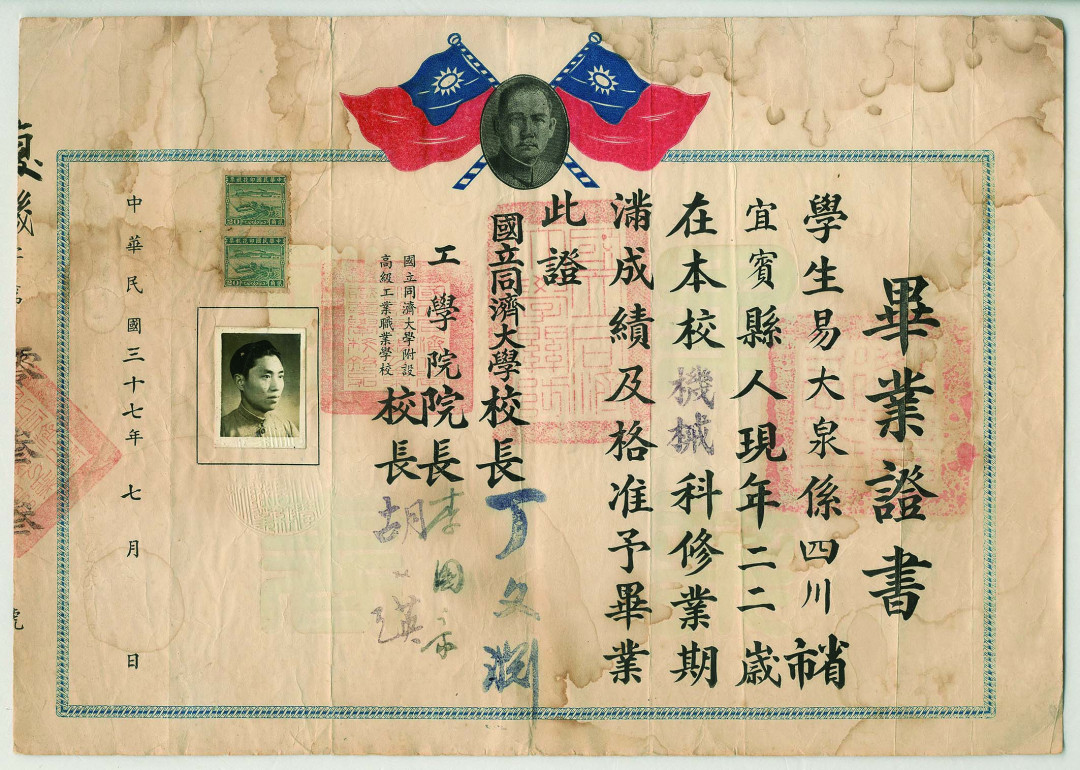 畢業證書
學生易大泉係四川省市
宜賓縣人現年二二歲
在本校機械科修業期
滿成績及格准予畢業
此證
國立同濟大學校長丁文淵
工學院院長李國豪
國立同濟大學附設
高級工業職業學校
校長胡
中華民國三十七年七月日
機
第零叁叁號